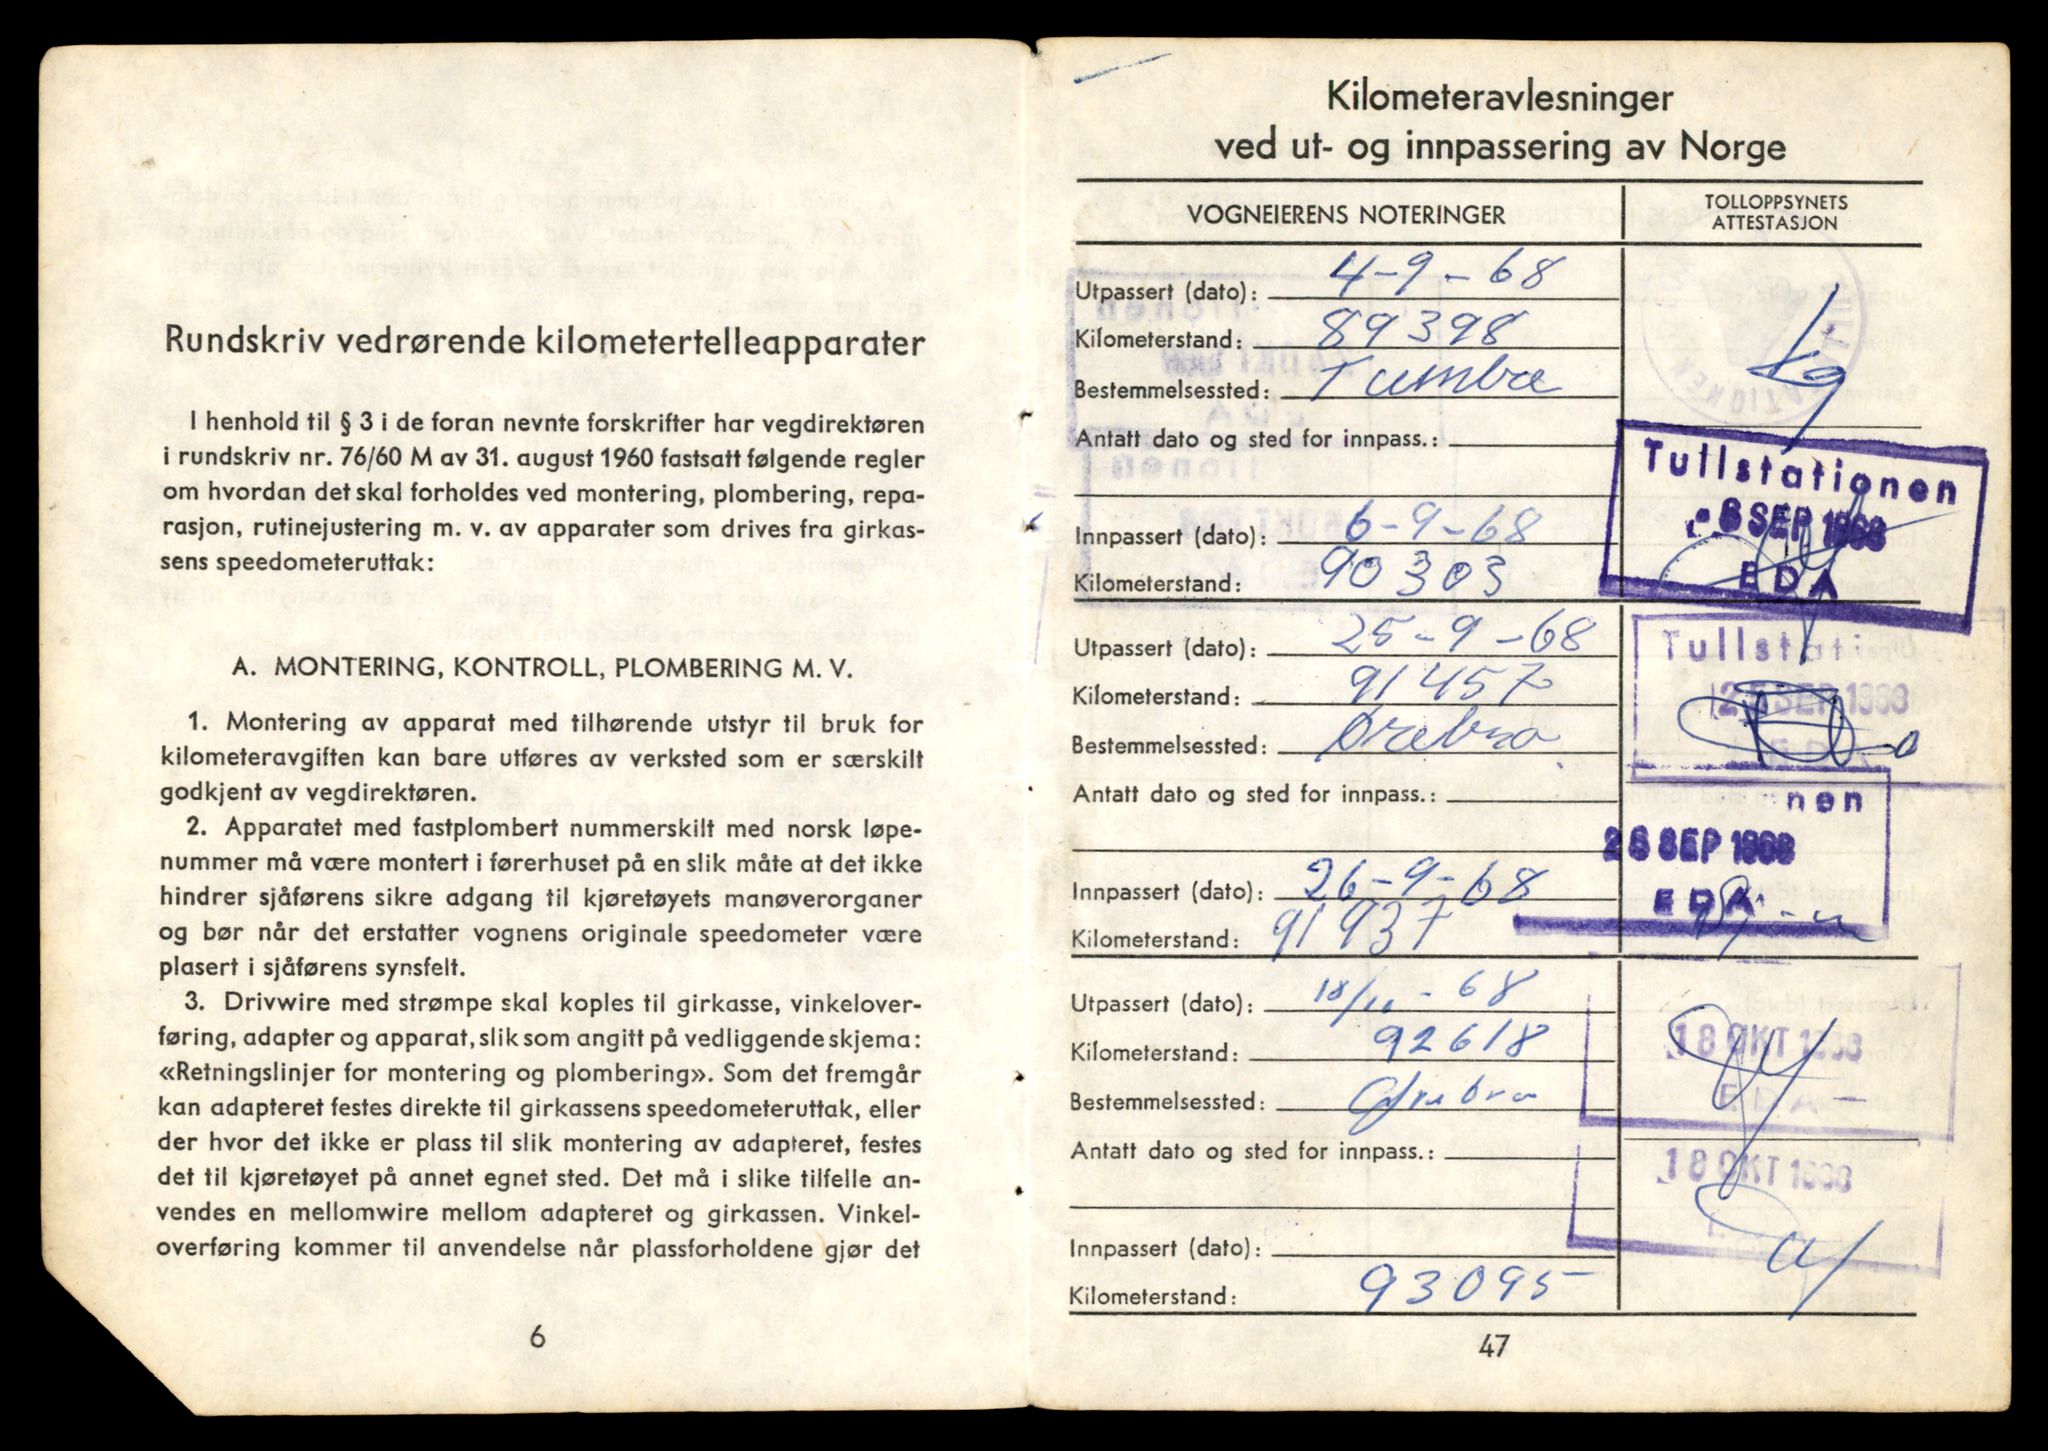 Rundskriv vedrørende kilometertelleapparater
I henhold til § 3 i de foran nevnte forskrifter har vegdirektøren
i rundskriv nr. 76/60 M av 31. august 1960 fastsatt følgende regler
om hvordan det skal forholdes ved montering, plombering, repa-
rasjon, rutinejustering m. v. av apparater som drives fra girkas-
sens speedometeruttak:
A. MONTERING, KONTROLL, PLOMBERING M. V.
1. Montering av apparat med tilhørende utstyr til bruk for
kilometeravgiften kan bare utføres av verksted som er særskilt
godkjent av vegdirektøren.
2. Apparatet med fastplombert nummerskilt med norsk løpe-
nummer må være montert i førerhuset på en slik måte at det ikke
hindrer sjåførens sikre adgang til kjøretøyets manøverorganer
og bør når det erstatter vognens originale speedometer være
plasert i sjåførens synsfelt.
3. Drivwire med strømpe skal koples til girkasse, vinkelover-
føring, adapter og apparat, slik som angitt på vedliggende skjema:
«Retningslinjer for montering og plombering». Som det fremgår
kan adapteret festes direkte til girkassens speedometeruttak, eller
der hvor det ikke er plass til slik montering av adapteret, festes
det til kjøretøyet på annet egnet sted. Det må i slike tilfelle an-
vendes en mellomwire mellom adapteret og girkassen. Vinkel-
overføring kommer til anvendelse når plassforholdene gjør det
6
Kilometeravlesninger
ved ut- og innpassering av Norge
VOGNEIERENS NOTERINGER
TOLLOPPSYNETS
ATTESTASJON
Utpassert (dato): 4-9-68
Kilometerstand: 89398
Bestemmelsessted: Tumba
Antatt dato og sted for innpass.:
Tullstationen
6 SEP 1968
EDA
Innpassert (dato): 6-9-68
Kilometerstand: 90303
Utpassert (dato): 25-9-68
Tullstati
25 SEP 1968
Kilometerstand: 91457
Bestemmelsessted: Ørebro
Antatt dato og sted for innpass.:
nen
26 SEP 1968
EDA
Innpassert (dato): 26-9-68
Kilometerstand: 91937
Utpassert (dato): 18/10-68
Kilometerstand: 92618
18 OKT 1968
EDA
Bestemmelsessted: Ørebro
Antatt dato og sted for innpass.:
18 OKT 1968
Innpassert (dato):
Kilometerstand: 93095
47